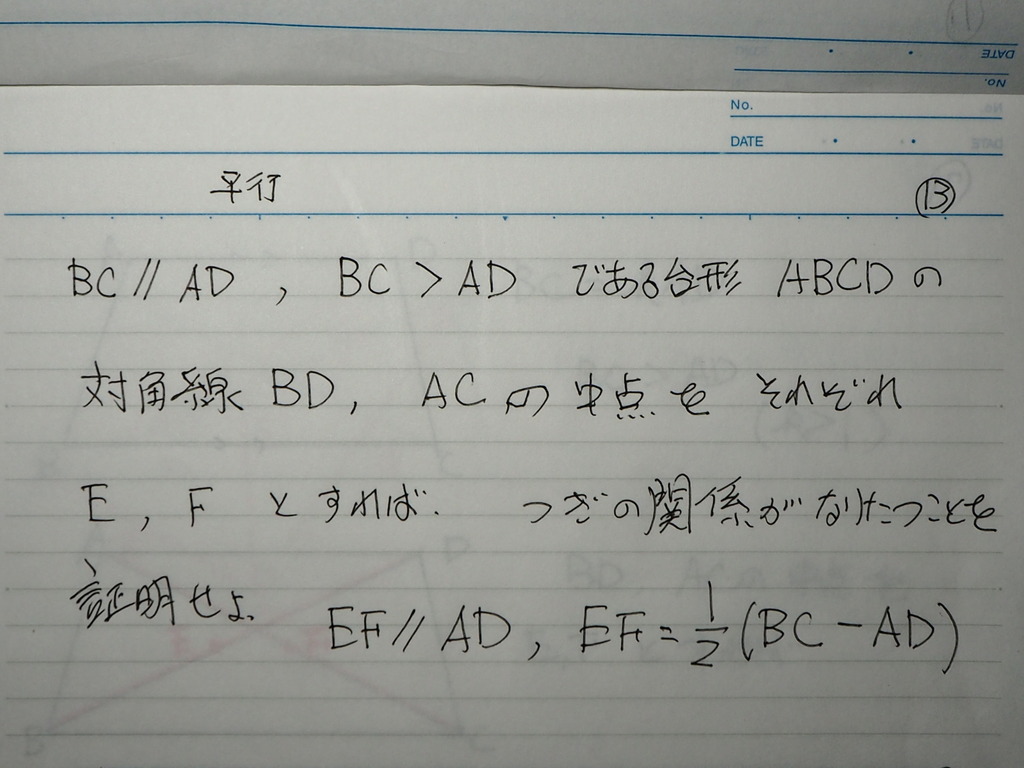 No.
DATE
平行 ⑬
BC // AD , BC > AD である台形 ABCD の
対角線 BD, AC の中点を それぞれ
E , F とすれば. つぎの関係がなりたつことを
証明せよ. EF // AD , EF = 1/2 (BC - AD)